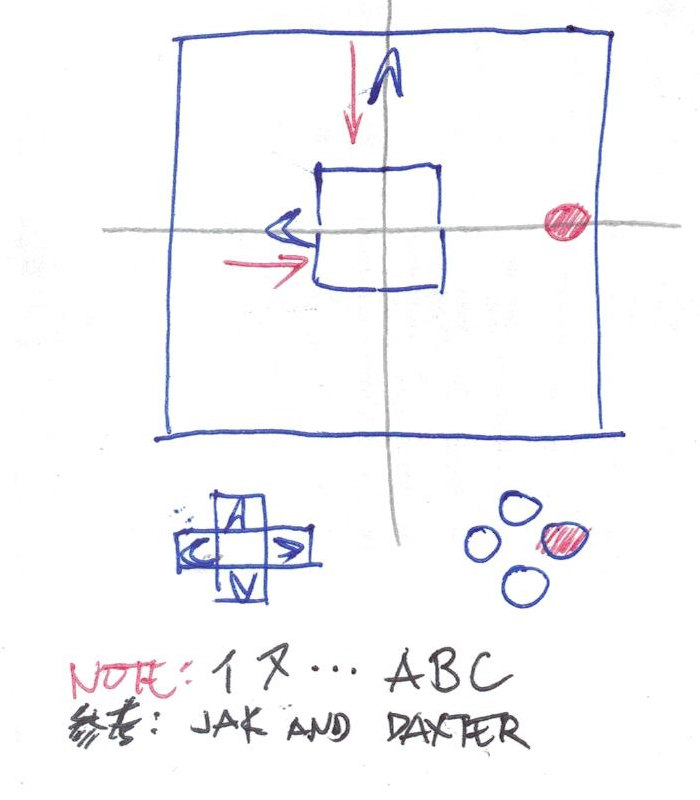 NOTE: イヌ… ABC
参考: JAK AND DAXTER